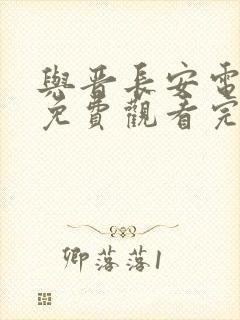 與晉長安電
免費觀看完
卿落落1